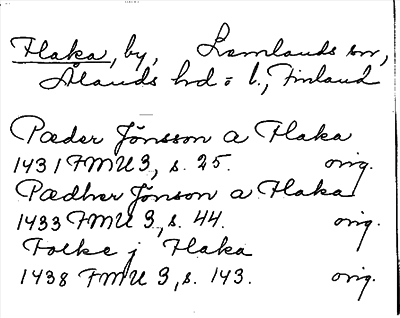 Flaka, by, Lemlands sn,
Ålands hd o l., Finland
Pæder Jönsson a Flaka
1431 FMU 3, s. 25. orig.
Pædher Jönson a Flaka
1433 FMU 3, s. 44. orig.
Folke j Flaka
1438 FMU 3, s. 143. orig.